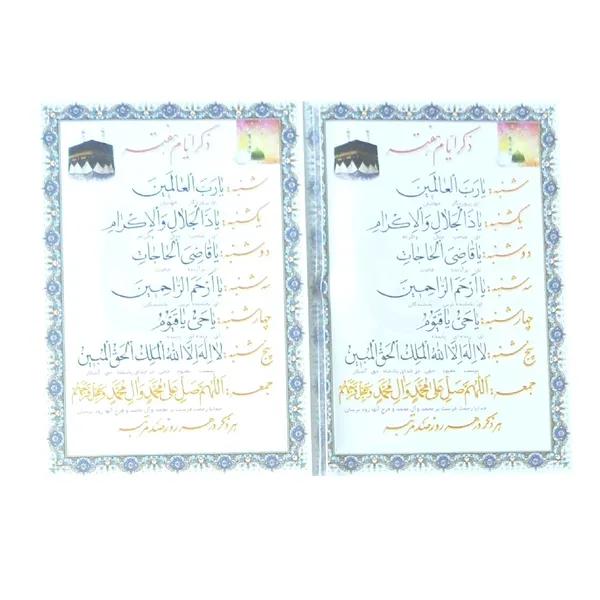 ذکر ایام هفته
شنبه: یا رَبَ العالَمین
یکشنبه: یا ذَا لجَلالِ وَالاِکرام
دوشنبه: یا قاضِیَ الحاجات
سه شنبه: یا اَرحَمَ الرّاحِمین
چهارشنبه: یا حَیُّ یا قَیّوم
پنج شنبه: لا اِلهَ اِلّا اللهُ المَلِکُ الحَقُّ المُبین
جمعه: اَللّهُمَّ صَلِّ عَلی مُحَمَّد وَآلِ مُحَمَّد وَعَجِّل فَرَجَهُم
خدایا رحمت فرست بر محمد و آل محمد و فرج آنها زود برسان
هر ذکر در هر روز صد مرتبه
ذکر ایام هفته
شنبه: یا رَبَ العالَمین
یکشنبه: یا ذَا لجَلالِ وَالاِکرام
دوشنبه: یا قاضِیَ الحاجات
سه شنبه: یا اَرحَمَ الرّاحِمین
چهارشنبه: یا حَیُّ یا قَیّوم
پنج شنبه: لا اِلهَ اِلّا اللهُ المَلِکُ الحَقُّ المُبین
جمعه: اَللّهُمَّ صَلِّ عَلی مُحَمَّد وَآلِ مُحَمَّد وَعَجِّل فَرَجَهُم
خدایا رحمت فرست بر محمد و آل محمد و فرج آنها زود برسان
هر ذکر در هر روز صد مرتبه